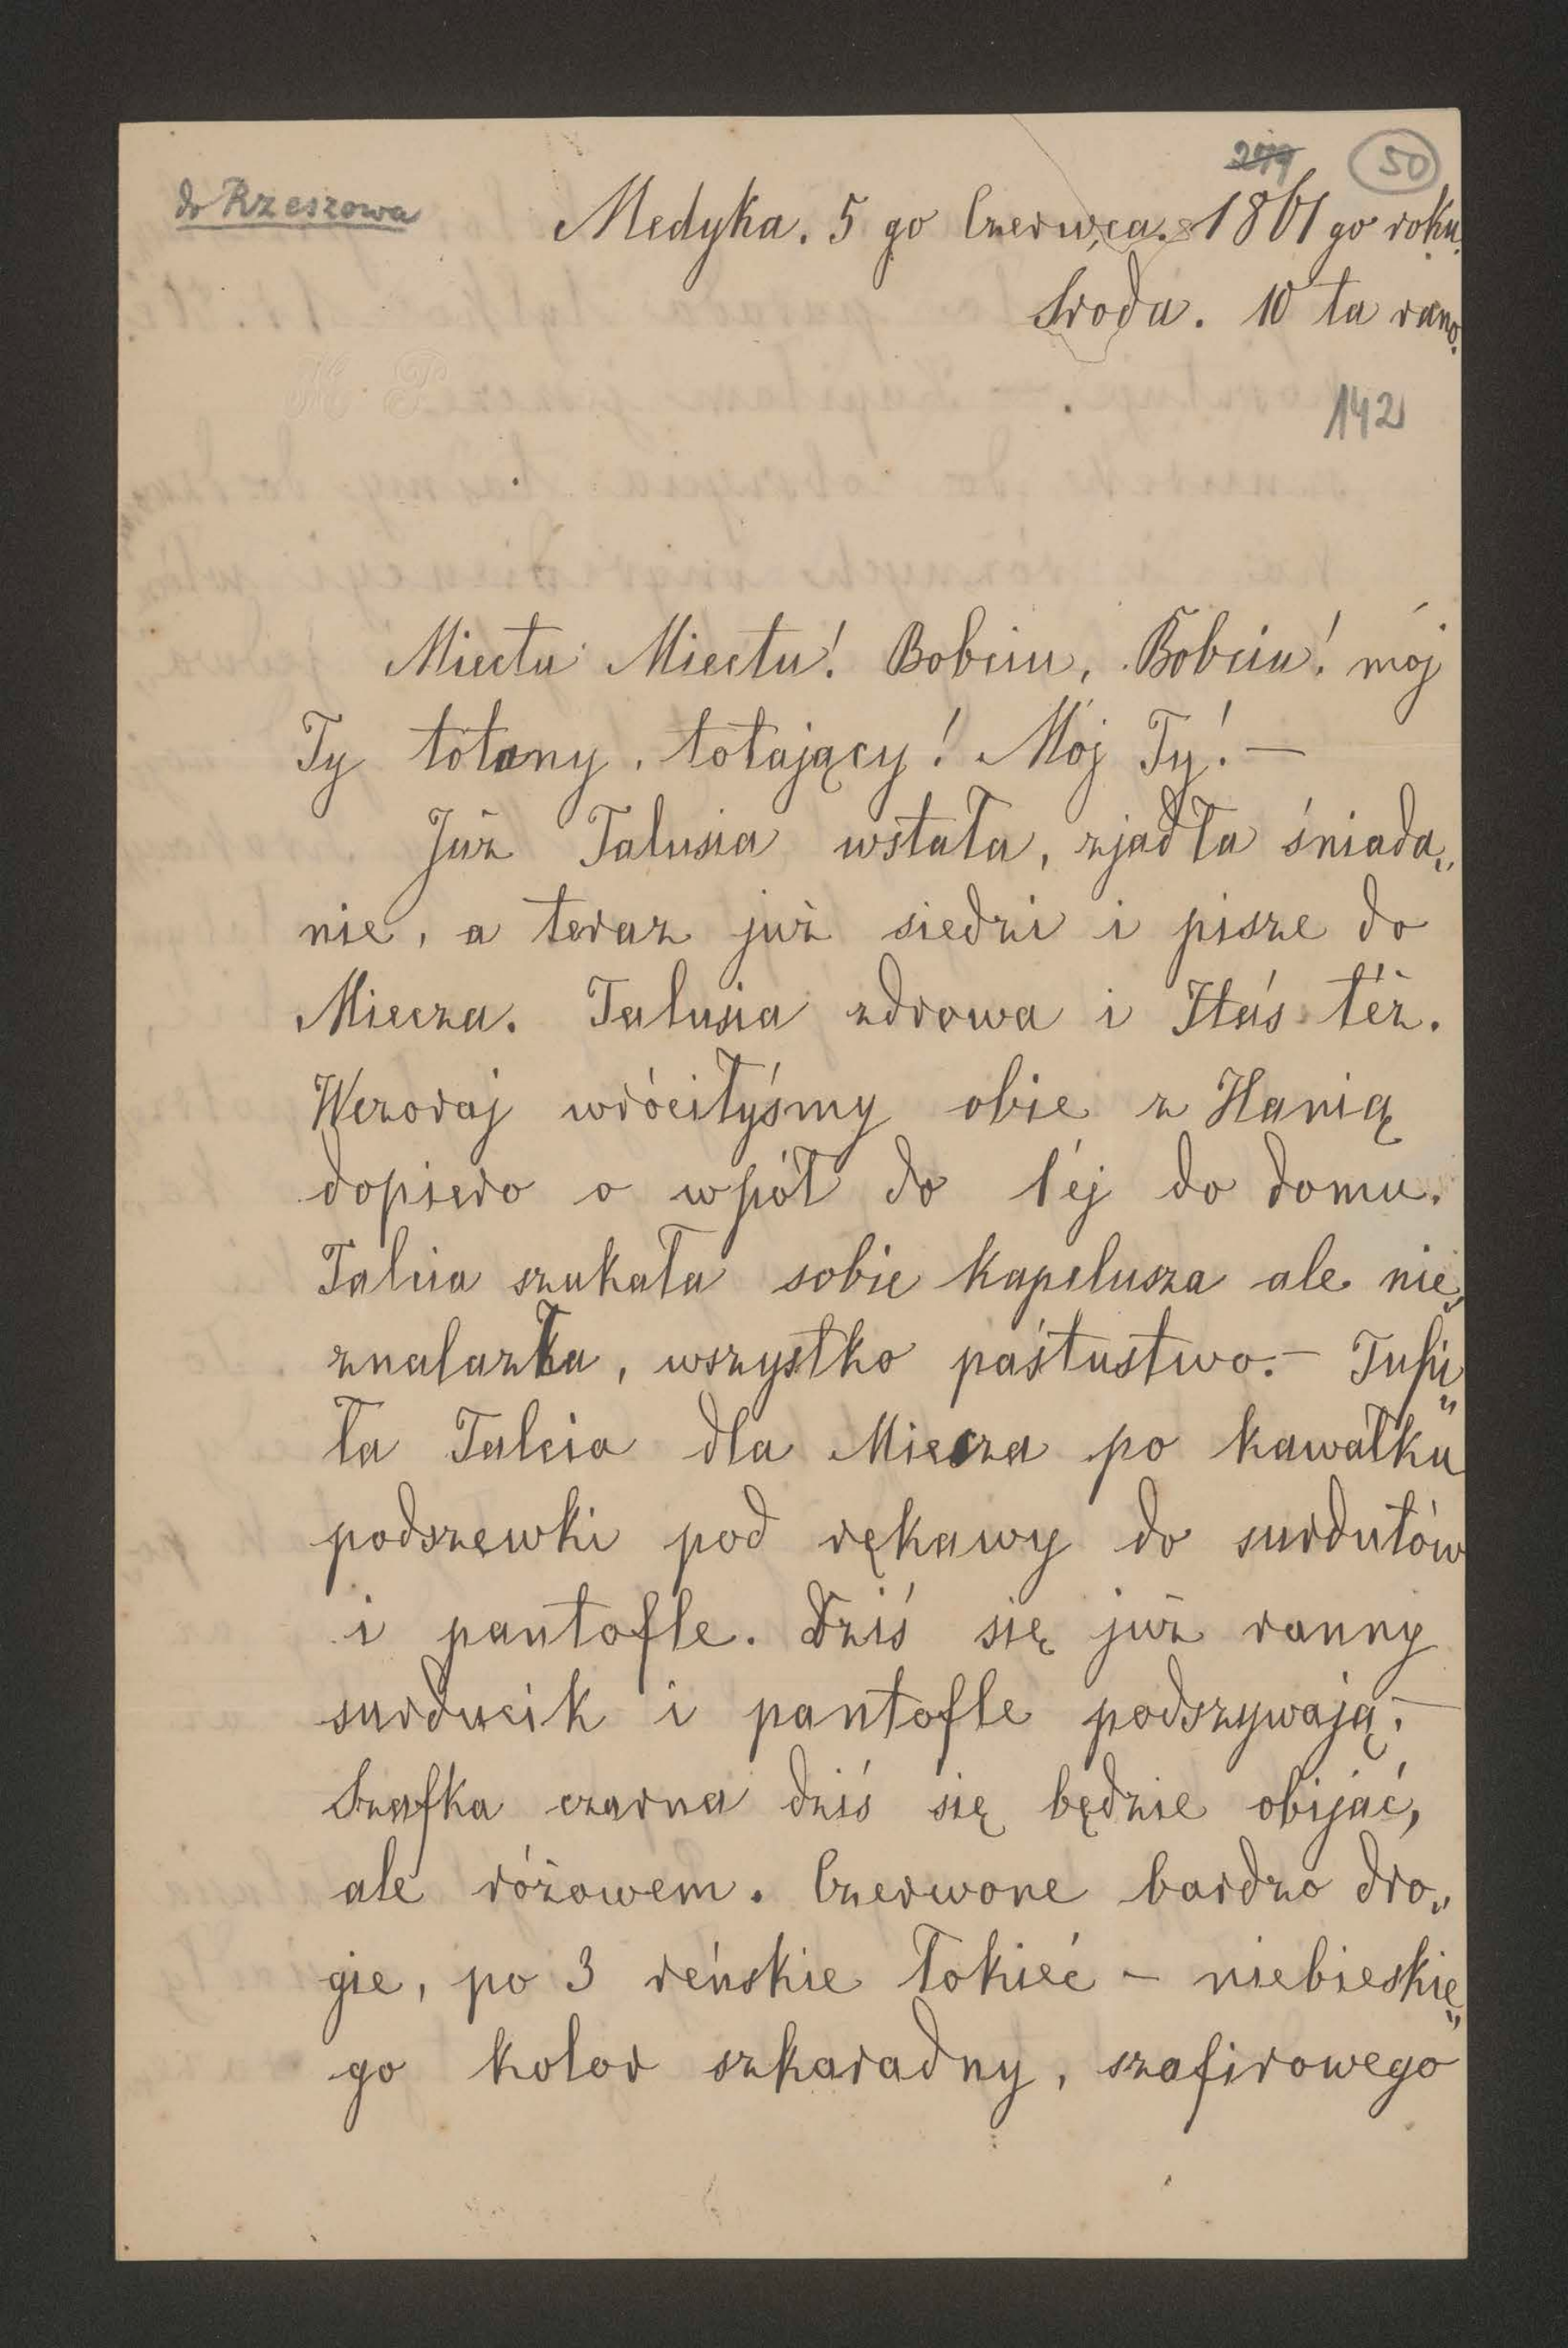 do Rzeszowa
279
50
Medyka. 5 go Czerwca. 1861 go roku.
Sroda. 10 ta rano.
142
Miectu Miectu! Bobciu, Bobciu! mój
Ty totany, totający! Mój Ty! —
Już Talusia wstała, zjadła śniada„
nie, a teraz już siedzi i pisze do
Miecza. Talusia zdrowa i Itaś téż.
Wczoraj wróciłyśmy obie z Hanią
dopiero o wpół do 1éj do domu.
Talcia szukała sobie kapelusza ale nie„
znalazła, wszystko paśtustwo. — Tupi„
ła Talcia dla Miecza po kawałku
podszewki pod rękawy do surdutów
i pantofle. Dziś się już ranny
surducik i pantofle podszywają. —
Szafka czarna dziś się będzie obijać,
ale różowem. Czerwone bardzo dro„
gie, po 3 reńskie łokieć — niebieskie„
go kolor szkaradny, szafirowego